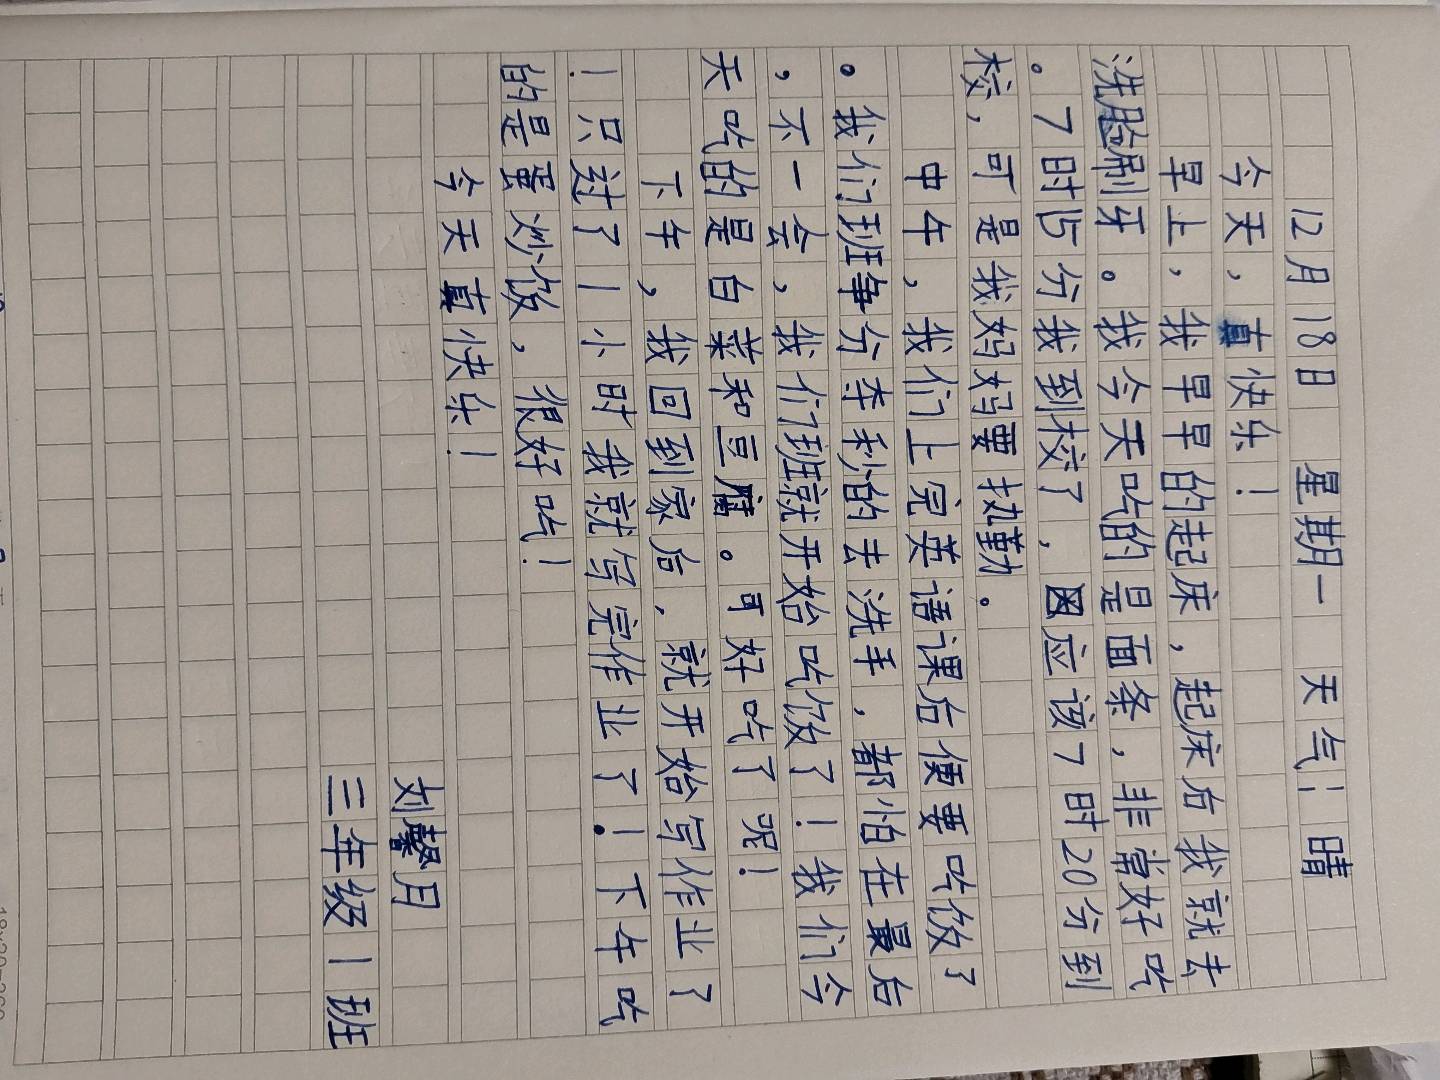 12月18日 星期一 天气：晴
今天，真快乐！
早上，我早早的起床，起床后我就去
洗脸刷牙。我今天吃的是面条，非常好吃
。7时15分我到校了，因应该7时20分到
校，可是我妈妈要执勤。
中午，我们上完英语课后便要吃饭了
。我们班争分夺秒的去洗手，都怕在最后
，不一会，我们班就开始吃饭了！我们今
天吃的是白菜和豆腐。可好吃了呢！
下午，我回到家后，就开始写作业了
！只过了1小时我就写完作业了！下午吃
的是蛋炒饭，很好吃！
今天真快乐！
刘馨月
三年级1班